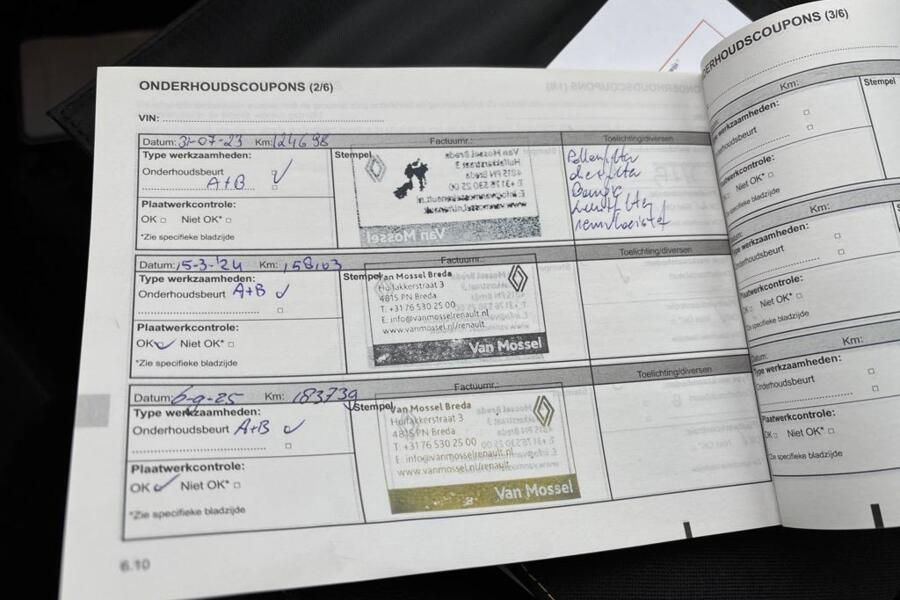 ONDERHOUDSCOUPONS (2/6)
VIN:
Datum: 31-07-23 Km: 124698 Factuurnr.: Toelichting/diversen
Type werkzaamheden:
Onderhoudsbeurt
A+B
Plaatwerkcontrole:
OK Niet OK*
*Zie specifieke bladzijde
Stempel
Van Mossel Breda
Huifakkerstraat 3
4815 PN Breda
T. +31 76 530 25 00
E. info@vanmosselrenault.nl
www.vanmossel.nl/renault
Van Mossel
Pollenfilter
remvloeistof
Datum: 15-3-'24 Km: 158103 Factuurnr.: Toelichting/diversen
Type werkzaamheden:
Onderhoudsbeurt A+B
Plaatwerkcontrole:
OK Niet OK*
*Zie specifieke bladzijde
Stempel
Van Mossel Breda
Huifakkerstraat 3
4815 PN Breda
T. +31 76 530 25 00
E. info@vanmosselrenault.nl
www.vanmossel.nl/renault
Van Mossel
Datum: 6-9-25 Km: 183739 Factuurnr.: Toelichting/diversen
Type werkzaamheden:
Onderhoudsbeurt A+B
Plaatwerkcontrole:
OK Niet OK*
*Zie specifieke bladzijde
Stempel
Van Mossel Breda
Huifakkerstraat 3
4815 PN Breda
T. +31 76 530 25 00
E. info@vanmosselrenault.nl
www.vanmossel.nl/renault
Van Mossel
6.10
DERHOUDSCOUPONS (3/6)
Km: Stempel
werkzaamheden:
houdsbeurt
werkcontrole:
Niet OK*
specifieke bladzijde
Km:
werkzaamheden:
erhoudsbeurt
aatwerkcontrole:
OK Niet OK*
Zie specifieke bladzijde
Datum: Km:
Type werkzaamheden:
Onderhoudsbeurt
Plaatwerkcontrole:
OK Niet OK*
*Zie specifieke bladzijde